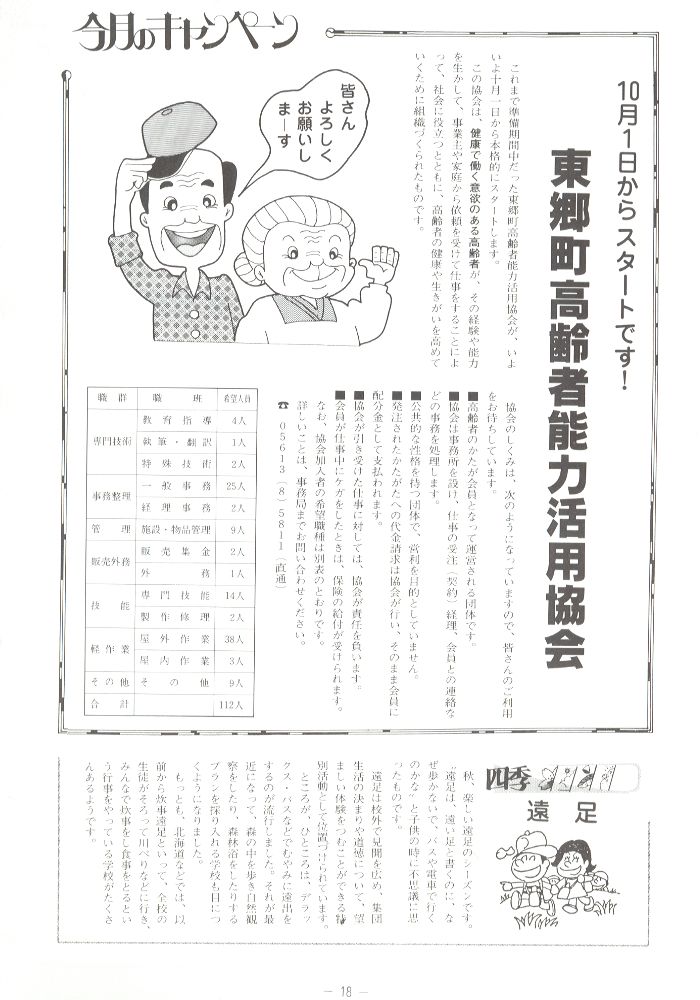 今月のキャンペーン
10月1日からスタートです!
東郷町高齢者能力活用協会
皆さん
よろしく
お願いし
まーす
これまで準備期間中だった東郷町高齢者能力活用協会が、いよ
いよ十月一日から本格的にスタートします。
この協会は、健康で働く意欲のある高齢者が、その経験や能力
を生かして、事業主や家庭から依頼を受けて仕事をすることによ
って、社会に役立つとともに、高齢者の健康や生きがいを高めて
いくために組織づくられたものです。
協会のしくみは、次のようになっていますので、皆さんのご利用
をお待ちしています。
■高齢者のかたが会員となって運営される団体です。
■協会は事務所を設け、仕事の受注(契約)経理、会員との連絡な
どの事務を処理します。
■公共的な性格を持つ団体で、営利を目的としていません。
■発注されたかたがたへの代金請求は協会が行い、そのまま会員に
配分金として支払われます。
■協会が引き受けた仕事に対しては、協会が責任を負います。
■会員が仕事中にケガをしたときは、保険の給付が受けられます。
なお、協会加入者の希望職種は別表のとおりです。
詳しいことは、事務局までお問い合わせください。
☎ 05613(8)5811(直通)
職群 職班 希望人員
専門技術 教育指導 4人
執筆・翻訳 1人
特殊技術 2人
事務整理 一般事務 25人
経理事務 2人
管理 施設・物品管理 9人
販売外務 販売集金 2人
外務 1人
技能 専門技能 14人
製作修理 2人
軽作業 屋外作業 38人
屋内作業 3人
その他 その他 9人
合計 112人
四季
遠足
秋、楽しい遠足のシーズンです。
「遠足は、遠い足と書くのに、な
ぜ歩かないで、バスや電車で行く
のかな」と子供の時に不思議に思
ったものです。
遠足は校外で見聞を広め、集団
生活の決まりや道徳について、望
ましい体験をつむことができる特
別活動として位置づけられています。
ところが、ひところは、デラッ
クス・バスなどでむやみに遠出を
するのが流行しました。それが最
近になって、森の中を歩き自然観
察をしたり、森林浴をしたりする
プランを採り入れる学校も目につ
くようになりました。
もっとも、北海道などでは、以
前から炊事遠足といって、全校の
生徒がそろって川べりなどに行き、
みんなで炊事をし食事をとるとい
う行事をやっている学校がたくさ
んあるようです。
— 18 —